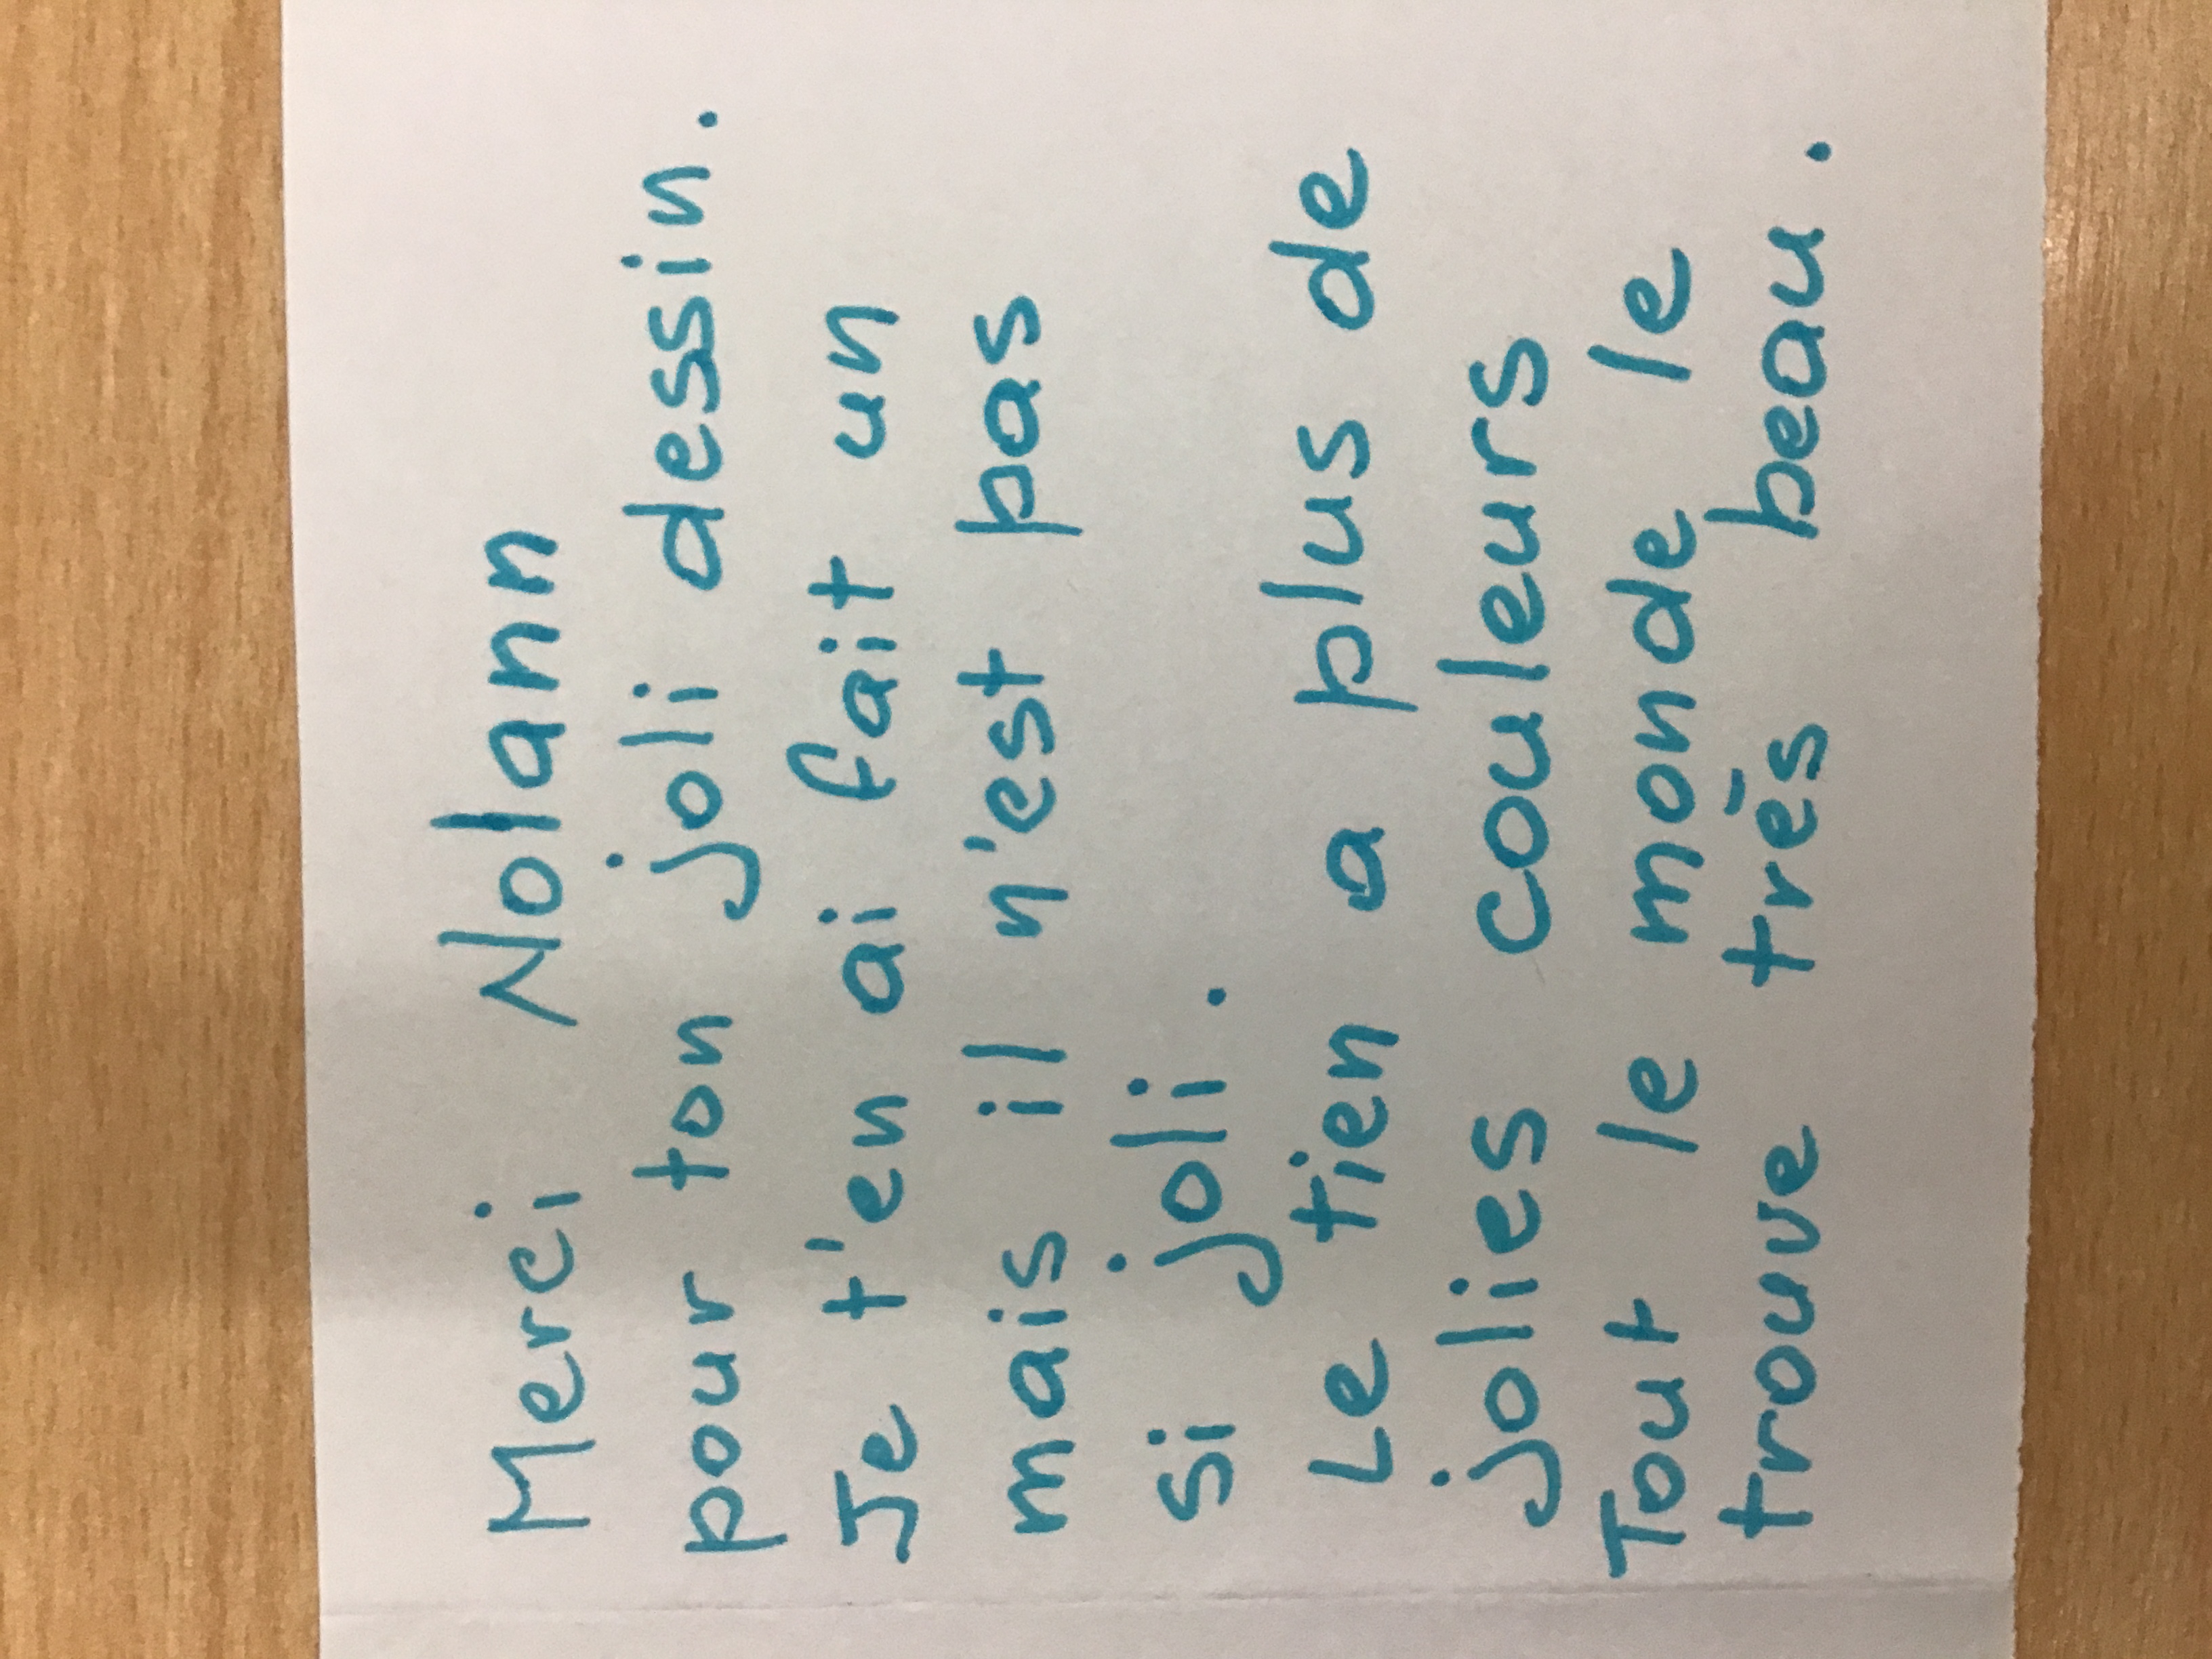 Merci Nolann
pour ton joli dessin.
Je t'en ai fait un
mais il n'est pas
si joli.
Le tien a plus de
jolies couleurs
Tout le monde le
trouve très beau.